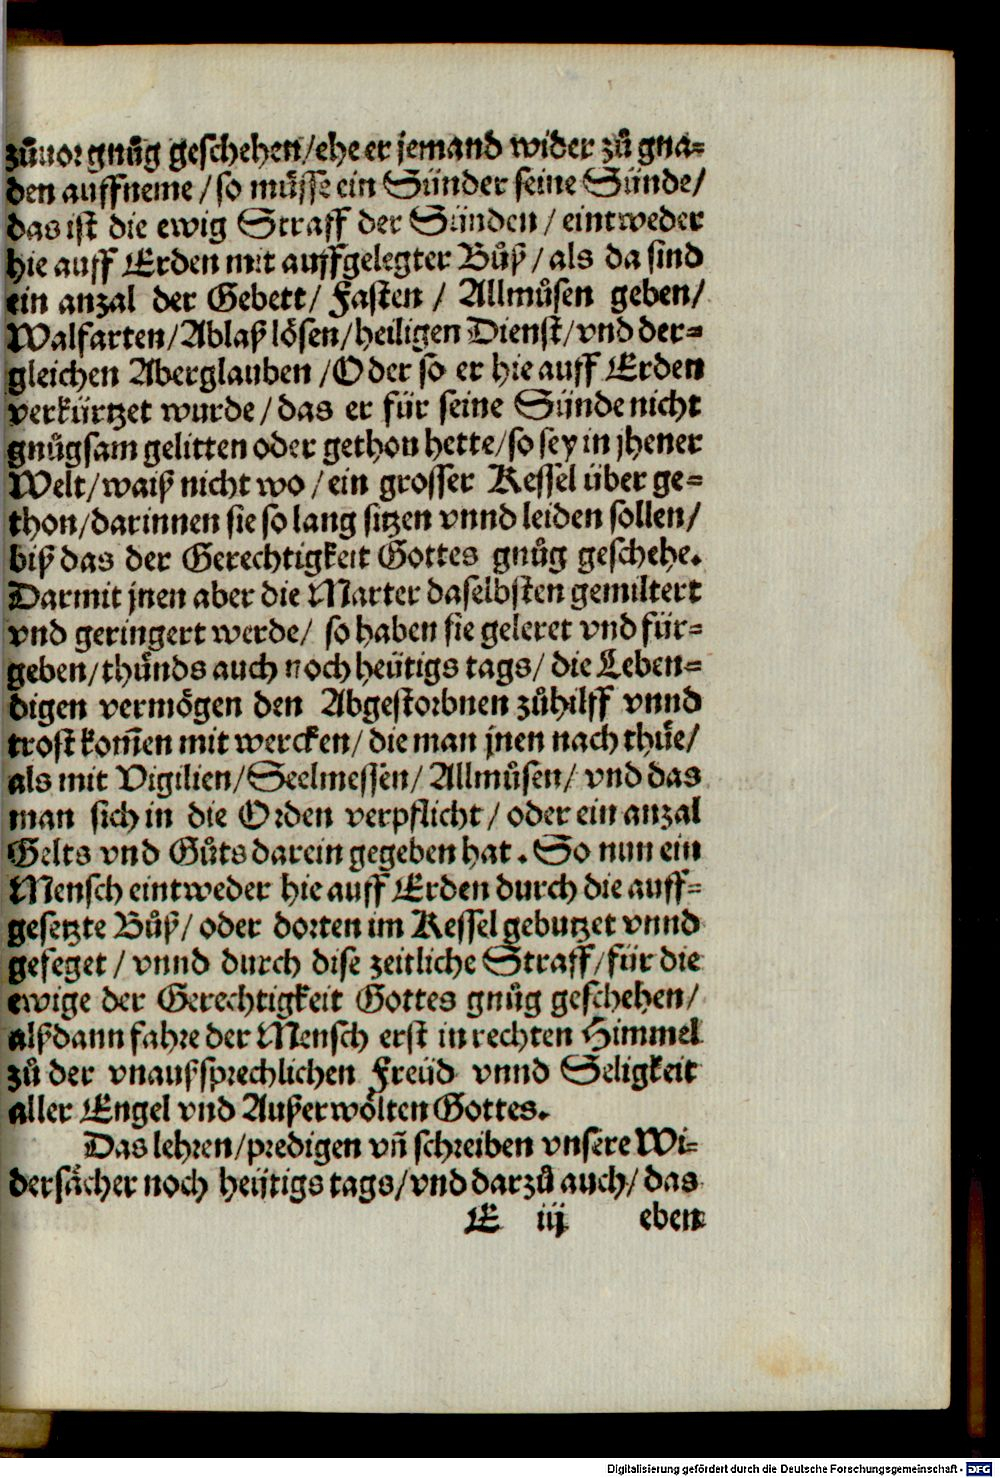 zůuor gnůg geschehen/ehe er jemand wider zů gna-
den auffneme/so můsse ein Sünder seine Sünde/
das ist die ewig Straff der Sünden/eintweder
hie auff Erden mit auffgelegter Bůß/als da sind
ein anzal der Gebett/Fasten/Allmůsen geben/
Walfarten/Ablaß lösen/heiligen Dienst/vnd der-
gleichen Aberglauben/Oder so er hie auff Erden
verkürtzet wurde/das er für seine Sünde nicht
gnůgsam gelitten oder gethon hette/so sey in jhener
Welt/waiß nicht wo/ein grosser Kessel über ge-
thon/darinnen sie so lang sitzen vnnd leiden sollen/
biß das der Gerechtigkeit Gottes gnůg geschehe.
Darmit jnen aber die Marter daselbsten gemiltert
vnd geringert werde/ so haben sie geleret vnd für-
geben/thůnds auch noch heütigs tags/die Leben-
digen vermögen den Abgestorbnen zůhilff vnnd
trost kom̃en mit wercken/die man jnen nach thůe/
als mit Vigilien/Seelmessen/Allmůsen/vnd das
man sich in die Orden verpflicht/oder ein anzal
Gelts vnd Gůts darein gegeben hat. So nun ein
Mensch eintweder hie auff Erden durch die auff-
gesetzte Bůß/oder dorten im Kessel gebutzet vnnd
gefeget/vnnd durch dise zeitliche Straff/für die
ewige der Gerechtigkeit Gottes gnůg geschehen/
alßdann fahre der Mensch erst in rechten Himmel
zů der vnaußsprechlichen Freüd vnnd Seligkeit
aller Engel vnd Außerwölten Gottes.
Das lehren/predigen vñ schreiben vnsere Wi-
dersächer noch heütigs tags/vnd darzů auch/das
E iij eben
Digitalisierung gefördert durch die Deutsche Forschungsgemeinschaft - DFG